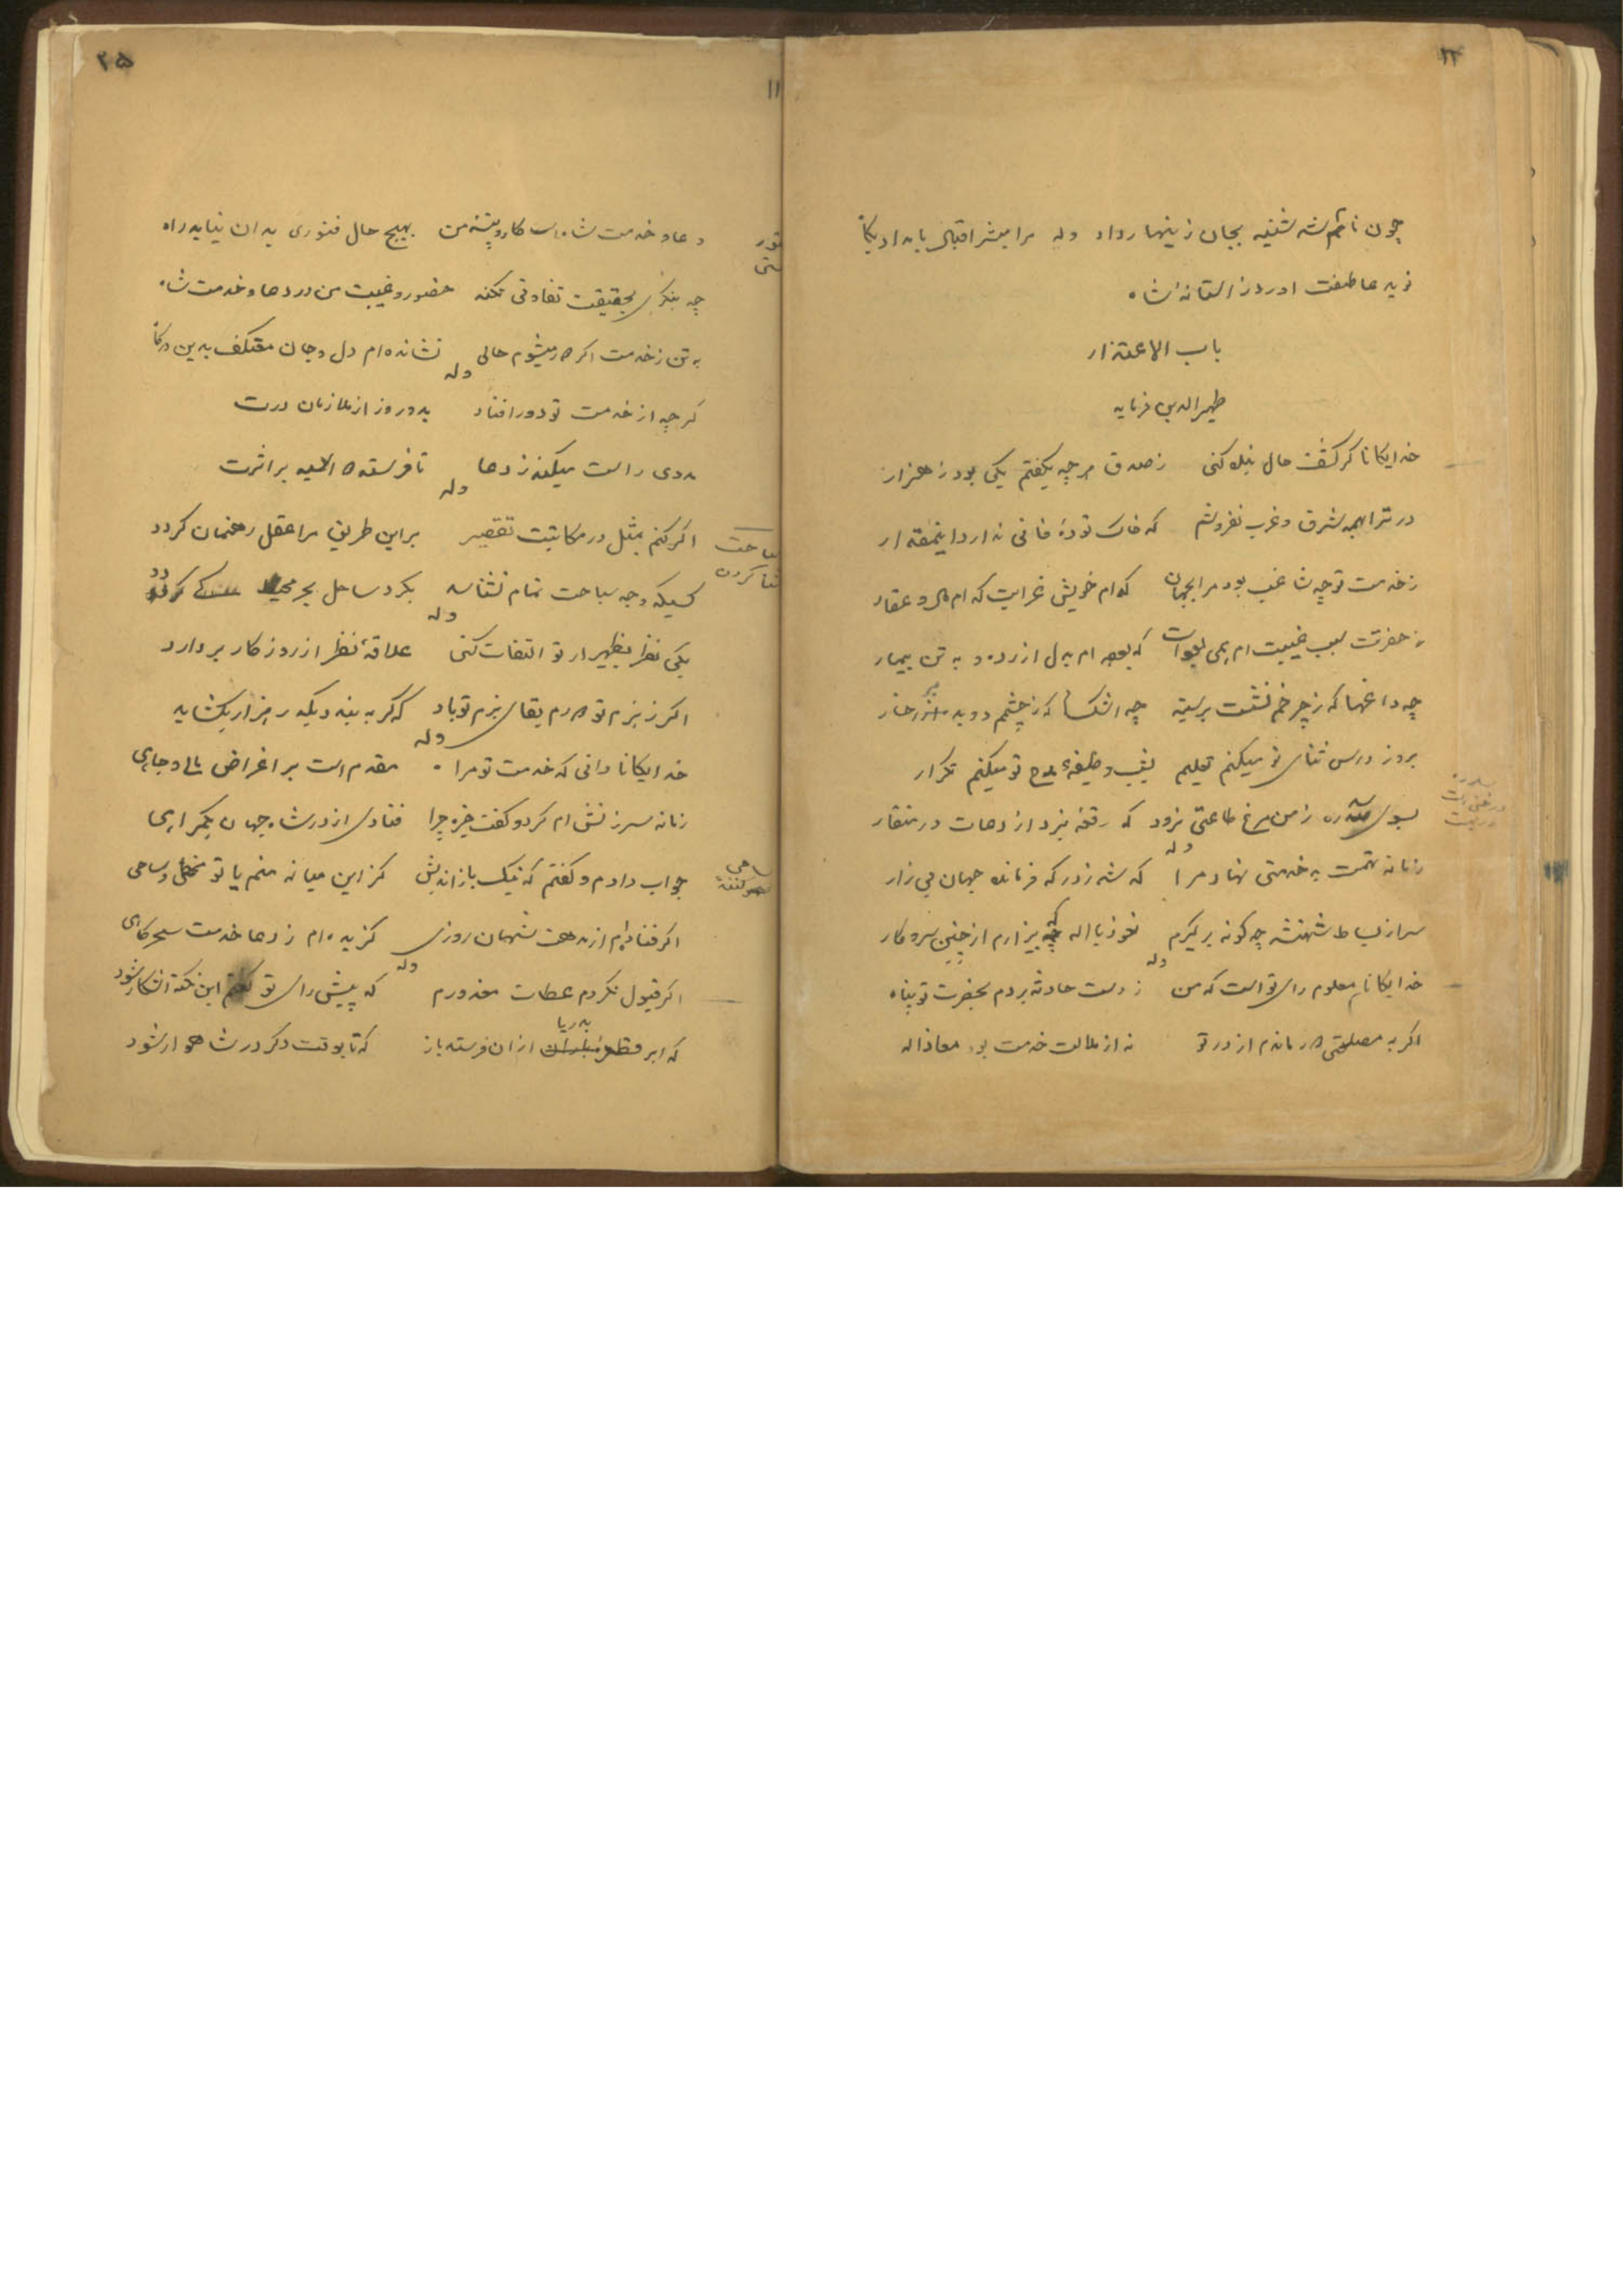 ۱۲
چون نام شه شنید بجان زینهار داد وله مرا مبشر اقبال بامداد پکاه
نوید عاطفت اورد ز استانه شاه
باب الاعتذار
ظهیرالدین فرماید
خدایکانا کر کشف حال بنده کنی ز صدق هر چه بکفتم یکی بود ز هزار
در ترا بهمه شرق و غرب نفروشم که خاک توده فانی ندارد اینمقدار
ز خدمت تو چه شاغب بود مرا بجهان کدام خویش غرابت کدام مال و عقار
ز حضرتت سبب غیبت ام همی که بوده ام بدل ازرده و به تن بیمار
چه داغها که ز چرخم نشست بر سینه چه اشکها که ز چشمم دوید بر رخسار
بروز درس ثنای تو میکنم تعلیم بشب وظیفه مدح تو میکنم تکرار
بسوی سدره ز من مرغ طاعتی نرود که رقعه نبرد از دعات در منقار
سدره
درختی است
در بهشت
وله
زمانه تهمت بد خدمتی نهاد مرا که شه ز درکه فرمانده جهان بی زار
سر از بساط شهنشه چه کونه برکیرم نعوذ بااله که بیزارم از چنین سر و کار
وله
خدایکانا معلوم رای تو است که من ز دست حادثه بردم بحضرت تو پناه
اکر به مصلحتی در ماندم از در تو نه از ملالت خدمت بود معاذاله
۲۵
۱۱
دعا و خدمت شاه است کار و پیشه من بهیچ حال فتوری بدان نیابد راه
چه بنکری بحقیقت تفاوتی نکند حضور و غیبت من در دعا و خدمت شاه
به تن ز خدمت اکر دور میشوم حالی نشانده ام دل و جان معتکف بدین درکاه
وله
کر چه از خدمت تو دور افتاد بدو روز از ملازمان درت
مددی راست میکند ز دعا تا فرستد بر اثرت
وله
اکر کنم بمثل در مکاتبت تقصیر براین طریق مرا عقل رهنمان کردد
سباحت
شنا کردن
کسیکه وجه سباحت تمام نشناسد بکرد ساحل بحر محیط کی کردد
وله
یکی نظر بظهیر ار تو التفات کنی علاقه نظر از روزکار بردارد
اکر ز بزم تو دورم بقای بزم تو باد که کر به بندد یکدر هزار بکشاید
وله
خدایکانا دانی که خدمت تو مرا مقدم است بر اغراض مالی و جاهی
زمانه سرزنش ام کرد و کفت خیره چرا فتادی از در شاه جهان بکمراهی
جواب دادم و کفتم که نیک باز اندیش کز این میانه منم یا تو مخطی و ساهی
ساهی
سهو کننده
اکر فتادم از مدحت شهان روزی کزیده ام ز دعا خدمت سحرکاهی
وله
اکر قبول نکردم عطات معذورم که پیش رای تو کفتم این نکته اشکار شود
که ابر قطره بدریا از ان فرستد باز که تا بوقت دکر در شاهوار شود